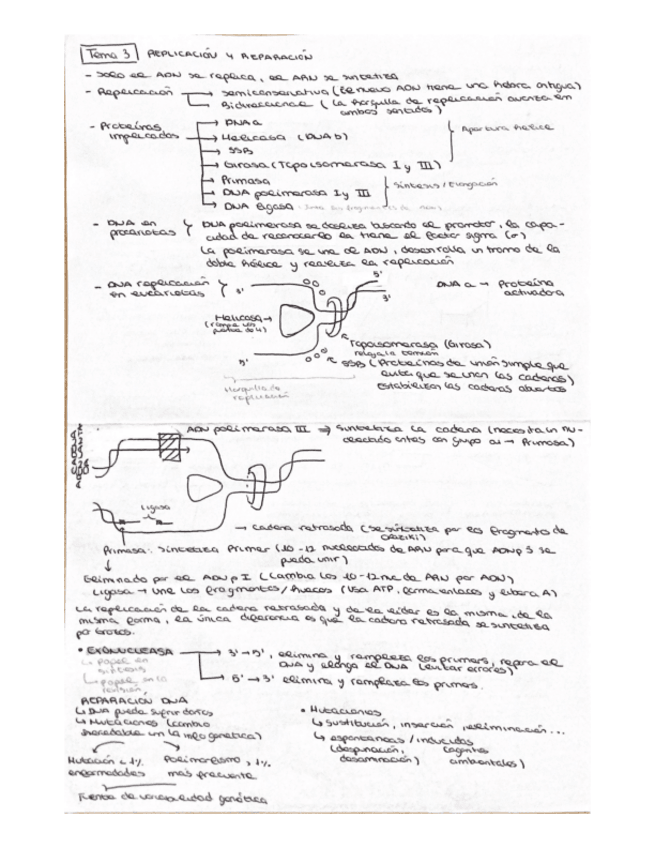 Tema 3 REPLICACIÓN Y REPARACIÓN
- Solo el ADN se replica, el ARN se sintetiza
- Replicación → semiconservativa (El nuevo ADN tiene una hebra antigua)
→ Bidireccional (La horquilla de replicación avanza en
ambos sentidos)
- Proteínas
implicadas
→ DNA a
→ Helicasa (DNA b)
→ SSB
→ Girasa (Topoisomerasa I y III)
Apertura hélice
→ Primasa
→ DNA polimerasa I y III
→ DNA ligasa
Síntesis / Elongación
- DNA en
procariotas
DNA polimerasa se desliza buscando el promotor, la capa-
cidad de reconocerlo la tiene el factor sigma (σ)
La polimerasa se une al ADN, desenrolla un tramo de la
doble hélice y realiza la replicación
- DNA replicación
en eucariotas
3'
5'
3'
DNA a → Proteína
activadora
Helicasa →
(rompe los
puentes de H)
5'
Topoisomerasa (Girasa)
relaja la tensión
SSB (Proteínas de unión simple que
evita que se unan las cadenas)
Estabilizan las cadenas abiertas
Horquilla de
replicación
ADN polimerasa III ⇒ Sintetiza la cadena (necesita un nu-
cleótido antes con grupo OH → Primasa)
Ligasa
→ Cadena retrasada (se sintetiza por los fragmento de
Okazaki)
Primasa: Sintetiza Primer (10-12 nucleótidos de ARN para que ADNp 3 se
pueda unir)
Eliminado por el ADN p I (Cambia los 10-12 nc de ARN por ADN)
Ligasa → une los fragmentos / huecos (Usa ATP, forma enlaces y libera A)
La replicación de la cadena retrasada y de la líder es la misma, de la
misma forma, la única diferencia es que la cadena retrasada se sintetiza
por trozos.
• EXONUCLEASA → 3' → 5', elimina y remplaza los primers, repara el
DNA y elonga el DNA (evitar errores)
↳ papel en
síntesis
↳ papel en la
revisión
→ 5' → 3' elimina y remplaza los primers.
REPARACIÓN DNA
↳ DNA puede sufrir daños
↳ Mutaciones (cambio
heredable en la info genética)
Mutación < 1%
enfermedades
Polimorfismo > 1%
más frecuente
Fuente de variabilidad genética
• Mutaciones
↳ sustitución, inserción, eliminación...
↳ espontáneas / inducidas
(depurinación, (agentes
desaminación) ambientales)